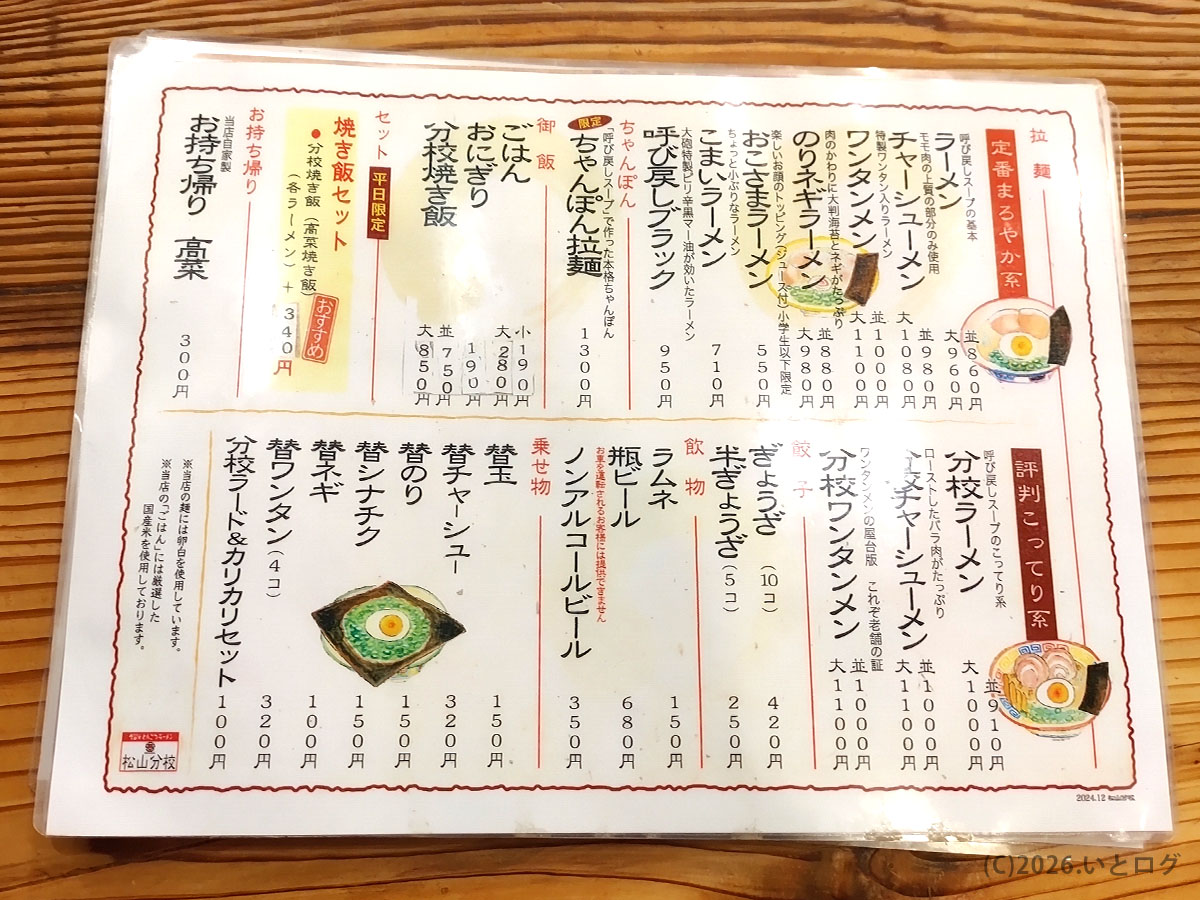 拉麺
定番まろやか系
呼び戻しスープの基本
ラーメン
並860円
大960円
モモ肉の上質の部分のみ使用
チャーシューメン
並980円
大1080円
特製ワンタン入りラーメン
ワンタンメン
並1000円
大1100円
肉のかわりに大判海苔とネギがたっぷり
のりネギラーメン
並880円
大980円
楽しいお顔のトッピング(ジュース付)小学生以下限定
おこさまラーメン
550円
ちょっと小ぶりなラーメン
こまいラーメン
710円
大砲特製ピリ辛黒マー油が効いたラーメン
呼び戻しブラック
950円
ちゃんぽん
「呼び戻しスープ」で作った本格ちゃんぽん
限定
ちゃんぽん拉麺
1300円
御飯
ごはん
小190円
大280円
おにぎり
190円
分校焼き飯
並750円
大850円
セット
平日限定
焼き飯セット
●分校焼き飯(高菜焼き飯)
(各ラーメン)+340円
おすすめ
お持ち帰り
当店自家製
お持ち帰り 高菜
300円
評判こってり系
呼び戻しスープのこってり系
分校ラーメン
並910円
大1000円
ローストしたバラ肉がたっぷり
分校チャーシューメン
並1000円
大1100円
ワンタンメンの屋台版 これぞ老舗の証
分校ワンタンメン
並1000円
大1100円
餃子
ぎょうざ(10コ)
420円
半ぎょうざ(5コ)
250円
飲物
ラムネ
150円
瓶ビール
680円
お車を運転されるお客様には提供できません
ノンアルコールビール
350円
乗せ物
替玉
150円
替チャーシュー
320円
替のり
150円
替シナチク
150円
替ネギ
100円
替ワンタン(4コ)
320円
分校ラード&カリカリセット
100円
※当店の麺には卵白を使用しています。
※当店の「ごはん」には厳選した
国産米を使用しております。
松山分校
2024.12
(C)2026.いとログ